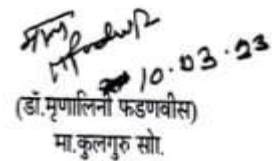 10.03.23
(डॉ.मृणालिनी फडणवीस)
मा.कुलगुरु सो.